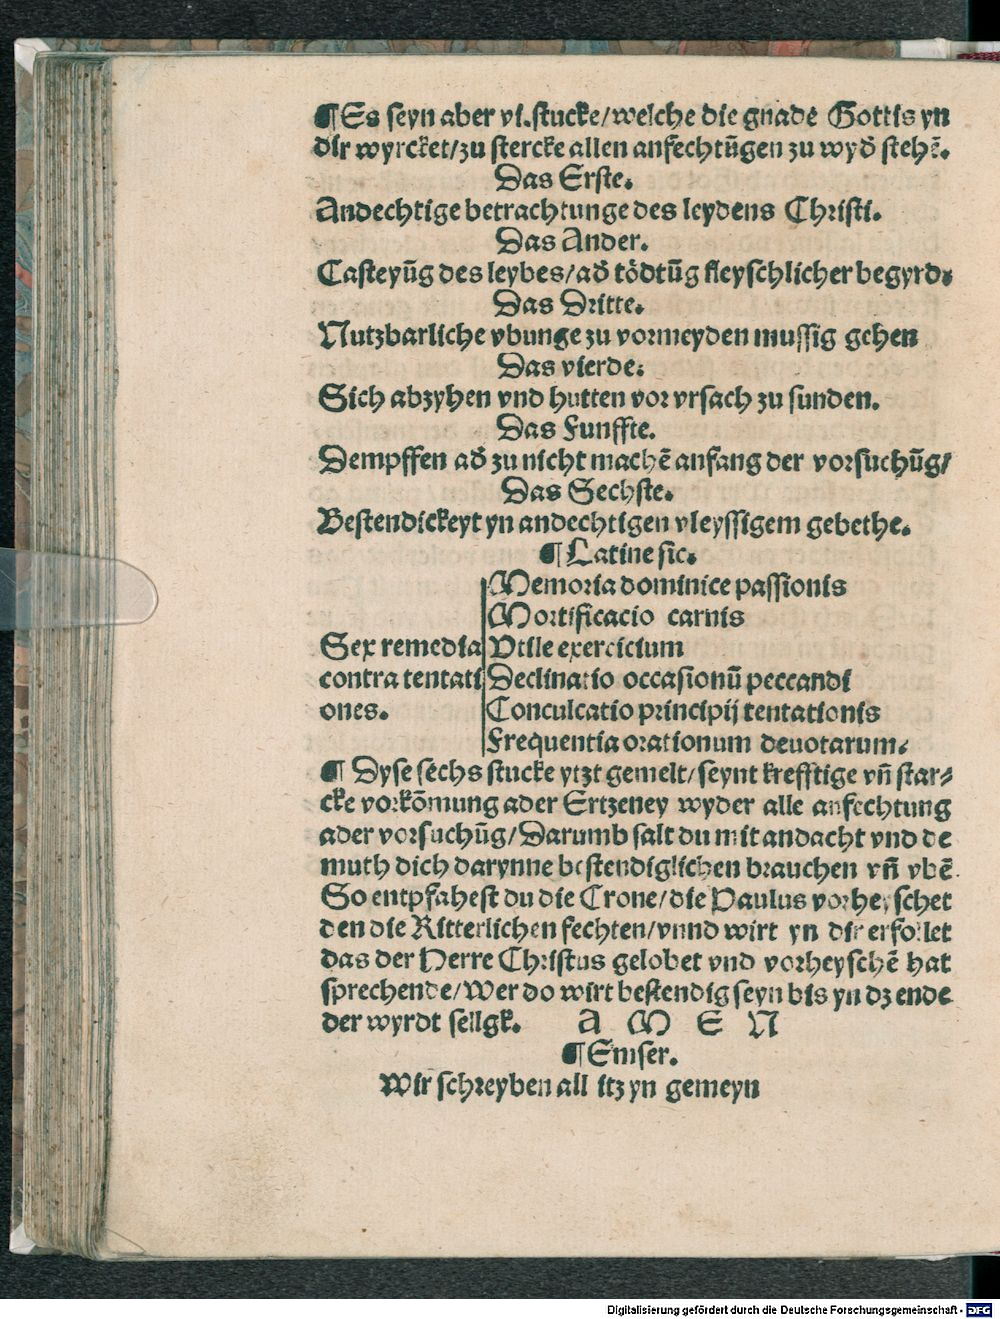 ¶ Es seyn aber vi. stucke/welche die gnade Gottis yn
dir wyrcket/zu stercke allen anfechtūgen zu wyd̄ stehē.
Das Erste.
Andechtige betrachtunge des leydens Christi.
Das Ander.
Casteyūg des leybes/ad̄ tödtūg fleyschlicher begyrd.
Das Dritte.
Nutzbarliche vbunge zu vormeyden mussig gehen
Das vierde.
Sich abzyhen vnd hutten vor vrsach zu sunden.
Das Funffte.
Dempffen ad̄ zu nicht machē anfang der vorsuchūg/
Das Sechste.
Bestendickeyt yn andechtigen vleyssigem gebethe.
¶ Latine sic.
Memoria dominice passionis
Mortificacio carnis
Sex remedia Vtile exercicium
contra tentati Declinatio occasionū peccandi
ones. Conculcatio principij tentationis
Frequentia orationum deuotarum.
¶ Dyse sechs stucke ytzt gemelt/seynt krefftige vn̄ star⸗
cke vorkōmung ader Ertzeney wyder alle anfechtung
ader vorsuchūg/Darumb salt du mit andacht vnd de
muth dich darynne bestendiglichen brauchen vn̄ vbē.
So entpfahest du die Crone/die Paulus vorheyschet
den die Ritterlichen fechten/vnnd wirt yn dir erfollet
das der Herre Christus gelobet vnd vorheyschē hat
sprechende/Wer do wirt bestendig seyn bis yn dz ende
der wyrdt sellgk. A M E N
¶ Emser.
Wir schreyben all itz yn gemeyn
Digitalisierung gefördert durch die Deutsche Forschungsgemeinschaft - DFG